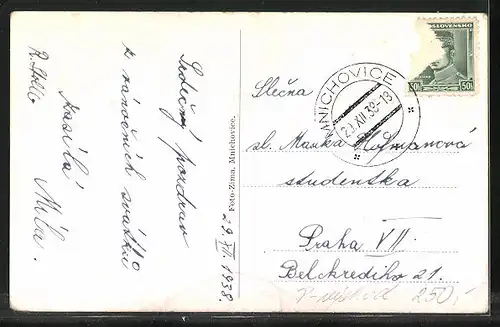 Srdečný pozdrav
z vánočních svátků
zasílá
Míla.
29. XII. 1938.
Foto-Zima, Mnichovice.
SLOVENSKO
50 50
MNICHOVICE
XII.38-13
Slečna
sl. Manka Hofmanová
studentka
Praha VII
Belcrediho 21.
250,-